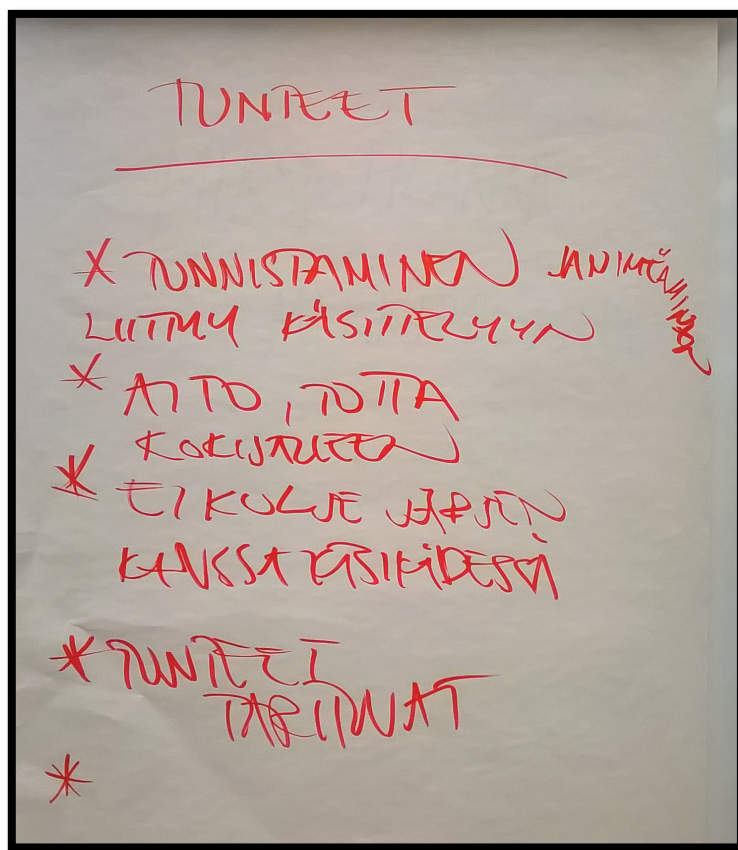 TUNTEET
* TUNNISTAMINEN JA NIMEÄMINEN
LIITTYY KÄSITTELYYN
* AITO, TOTTA
KOKIJALLEEN
* EI KULJE JÄRJEN
KANSSA KÄSIKÄDESSÄ
* TUNTEET
TARTTUVAT
*